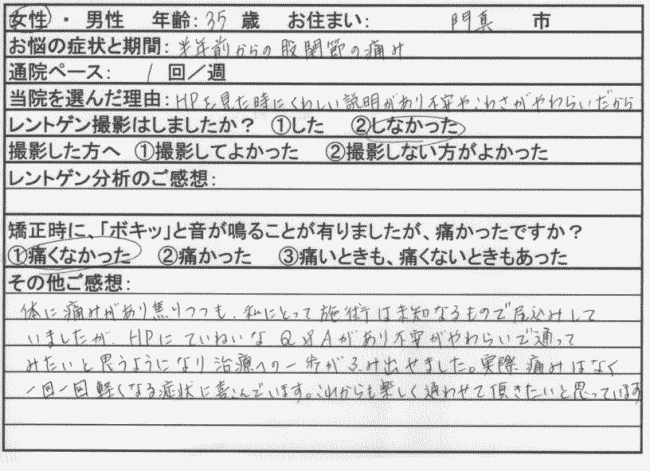 女性 ・ 男性 年齢: 35 歳 お住まい: 門真 市
お悩の症状と期間: 半年前からの股関節の痛み
通院ペース: 1 回/週
当院を選んだ理由: HPを見た時にくわしい説明があり不安やこわさがやわらいだから
レントゲン撮影はしましたか? ①した ②しなかった
撮影した方へ ①撮影してよかった ②撮影しない方がよかった
レントゲン分析のご感想:
矯正時に、「ボキッ」と音が鳴ることが有りましたが、痛かったですか?
①痛くなかった ②痛かった ③痛いときも、痛くないときもあった
その他ご感想:
体に痛みがあり焦りつつも、私にとって施術は未知なるもので尻込みして
いましたが、HPにていねいなQ&Aがあり不安がやわらいで通って
みたいと思うようになり治療への一歩がふみ出せました。実際痛みはなく
一回一回軽くなる症状に喜んでいます。これからも楽しく通わせて頂きたいと思っています